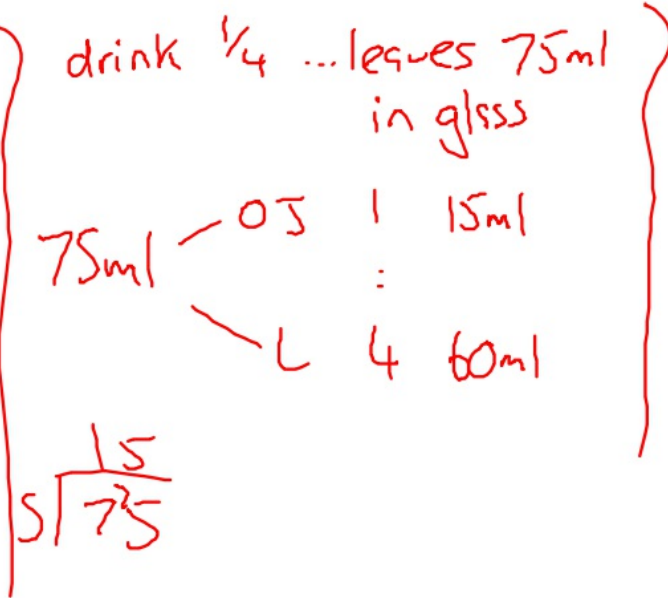 drink 1/4 ...leaves 75ml
in glsss
75ml
OJ 1 15ml
:
L 4 60ml
15
5 725